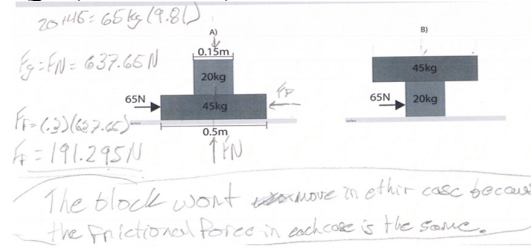 20+45=65kg(9.81)
Fg=FN=637.65N
FF=(.3)(637.65)
FF=191.295N
A)
0.15m
20kg
65N
45kg
FF
0.5m
FN
B)
45kg
65N
20kg
The block wont move in ethir case becau
the frictional force in each case is the same.